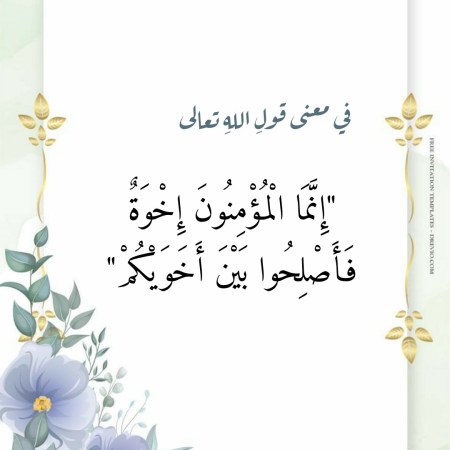 في معنى قولِ اللهِ تعالى
"إِنَّمَا الْمُؤْمِنُونَ إِخْوَةٌ
فَأَصْلِحُوا بَيْنَ أَخَوَيْكُمْ"
FREE INVITATION TEMPLATES -